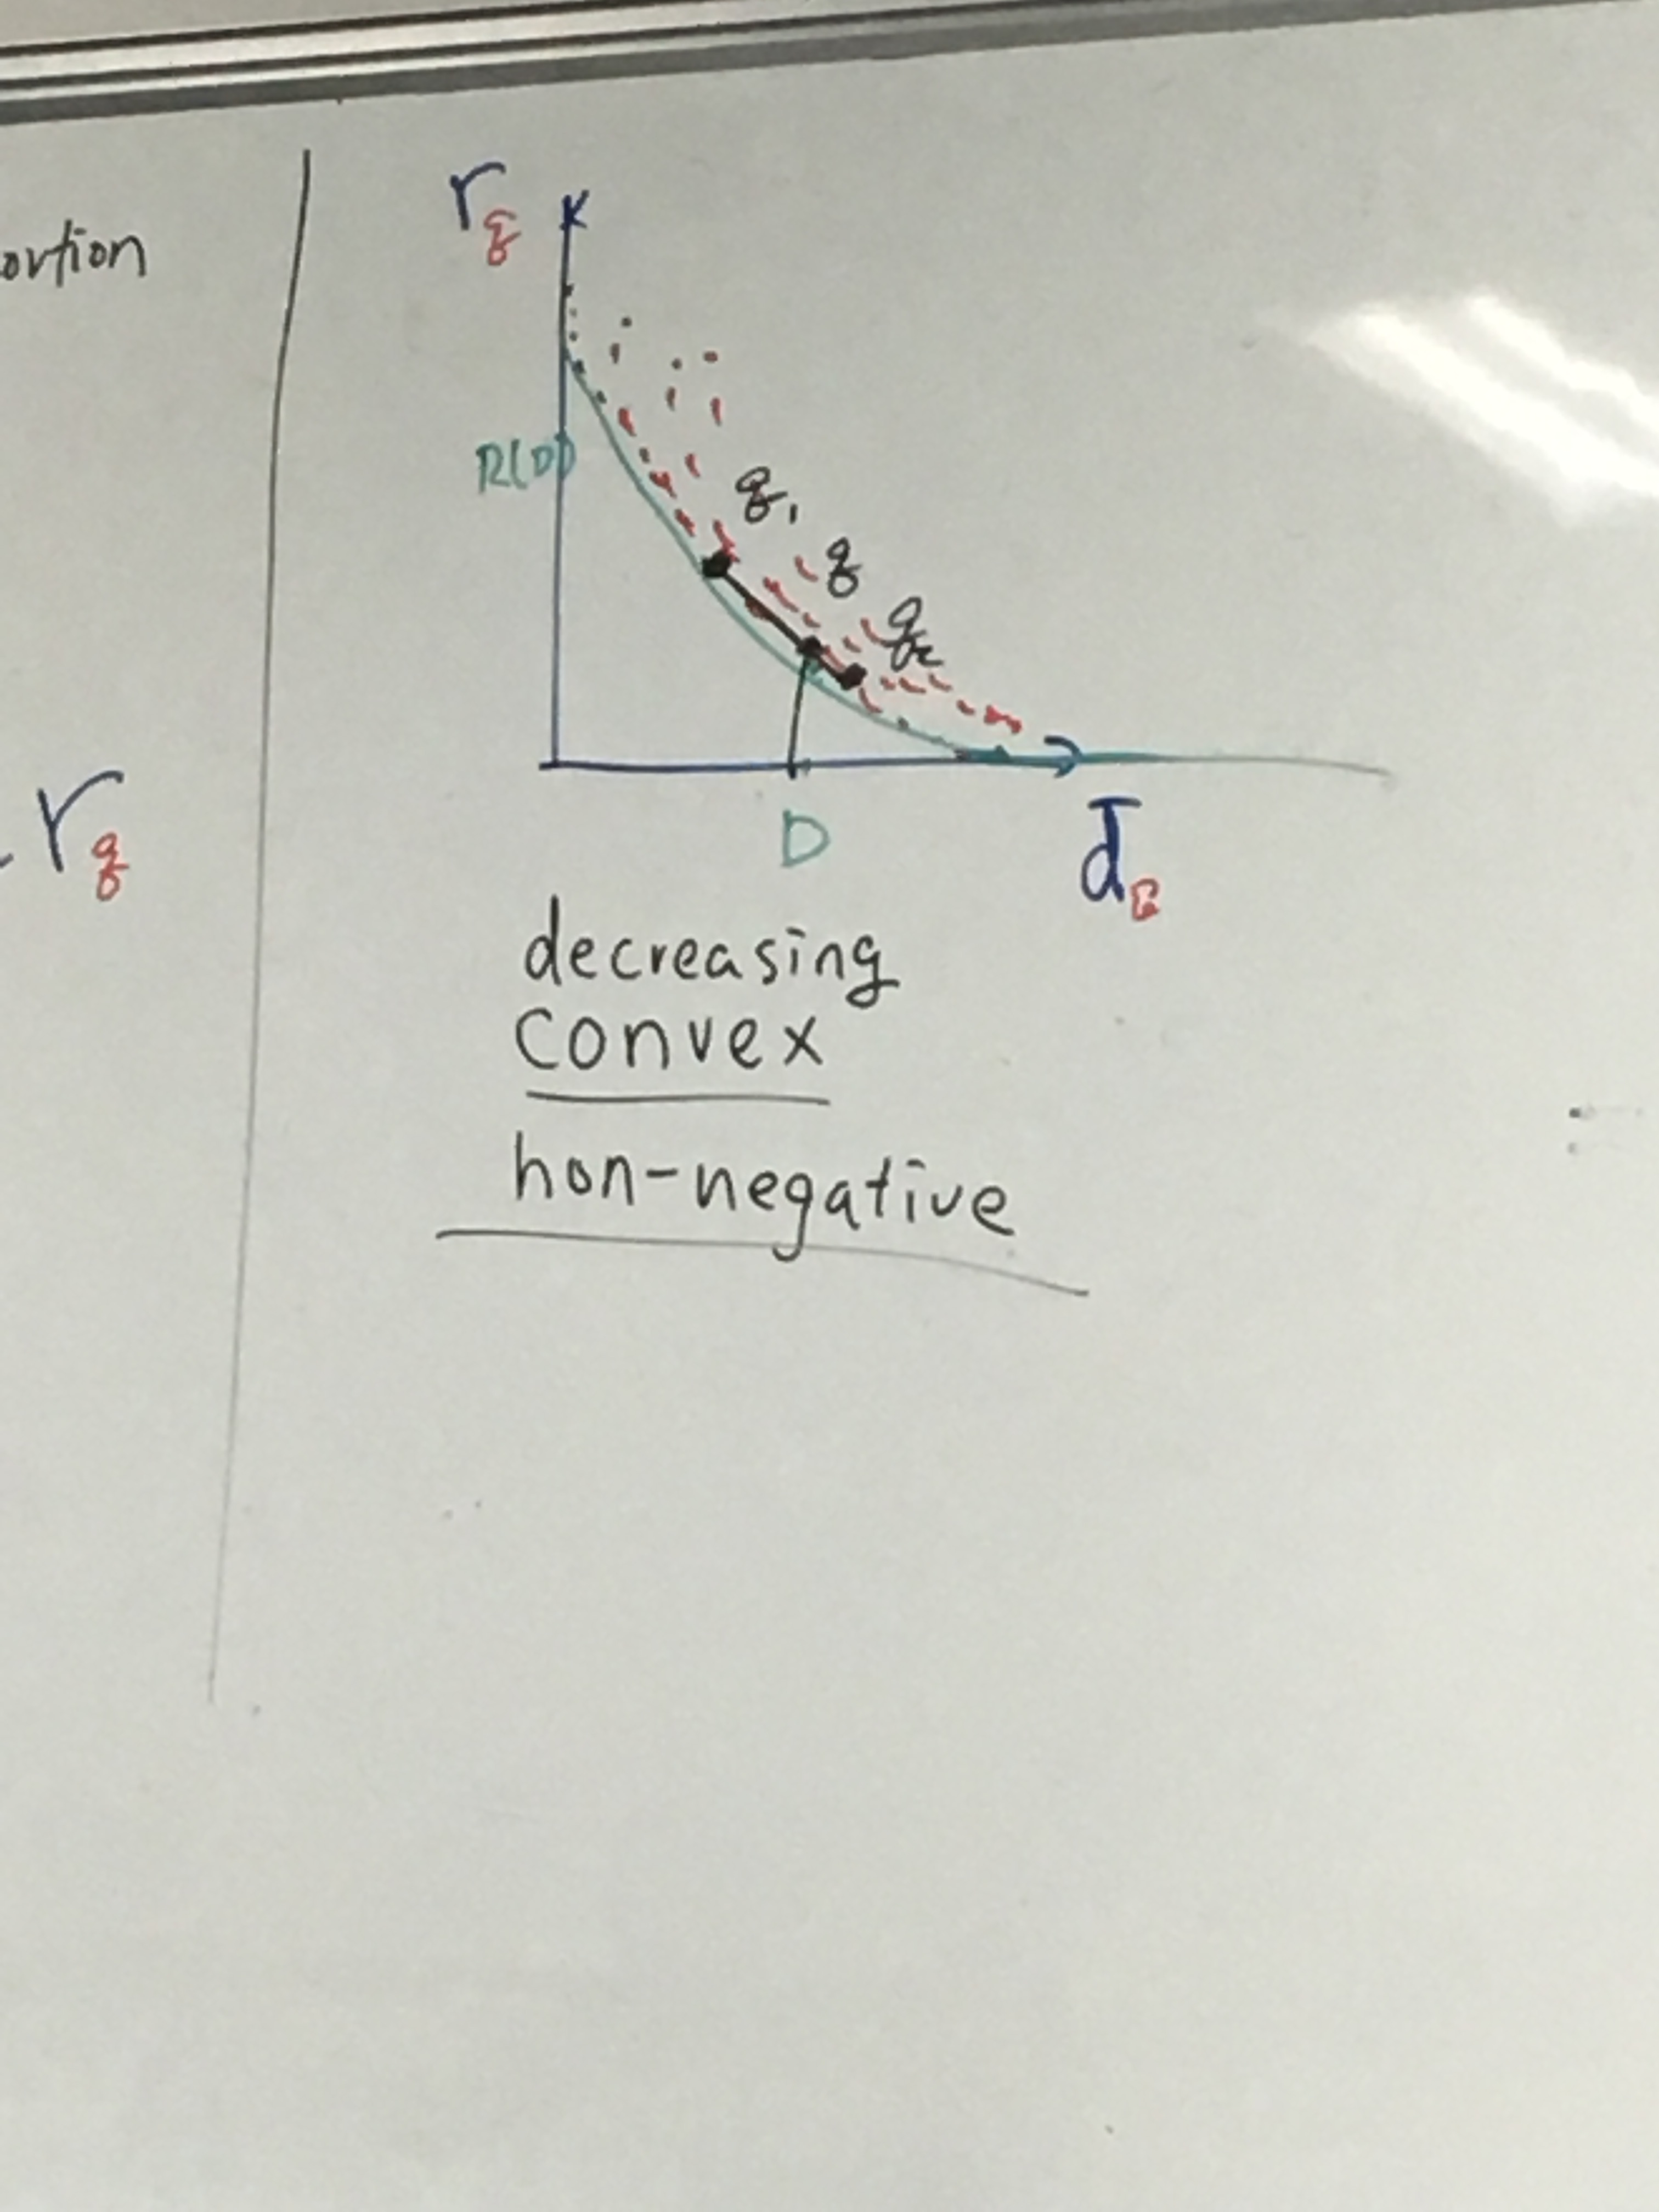 ortion
r_q
R(D)
q_1
q
q_2
r_q
D
d
decreasing
convex
non-negative